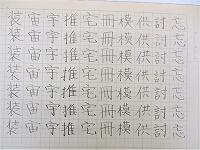 装宙宇推宅冊模供討忘
装宙宇推宅冊模供討忘
装宙宇推宅冊模供討忘
装宙宇推宅冊模供討忘
装宙宇推宅冊模供討忘
装宙宇推宅冊模供討忘
装宙宇推宅冊模供討忘